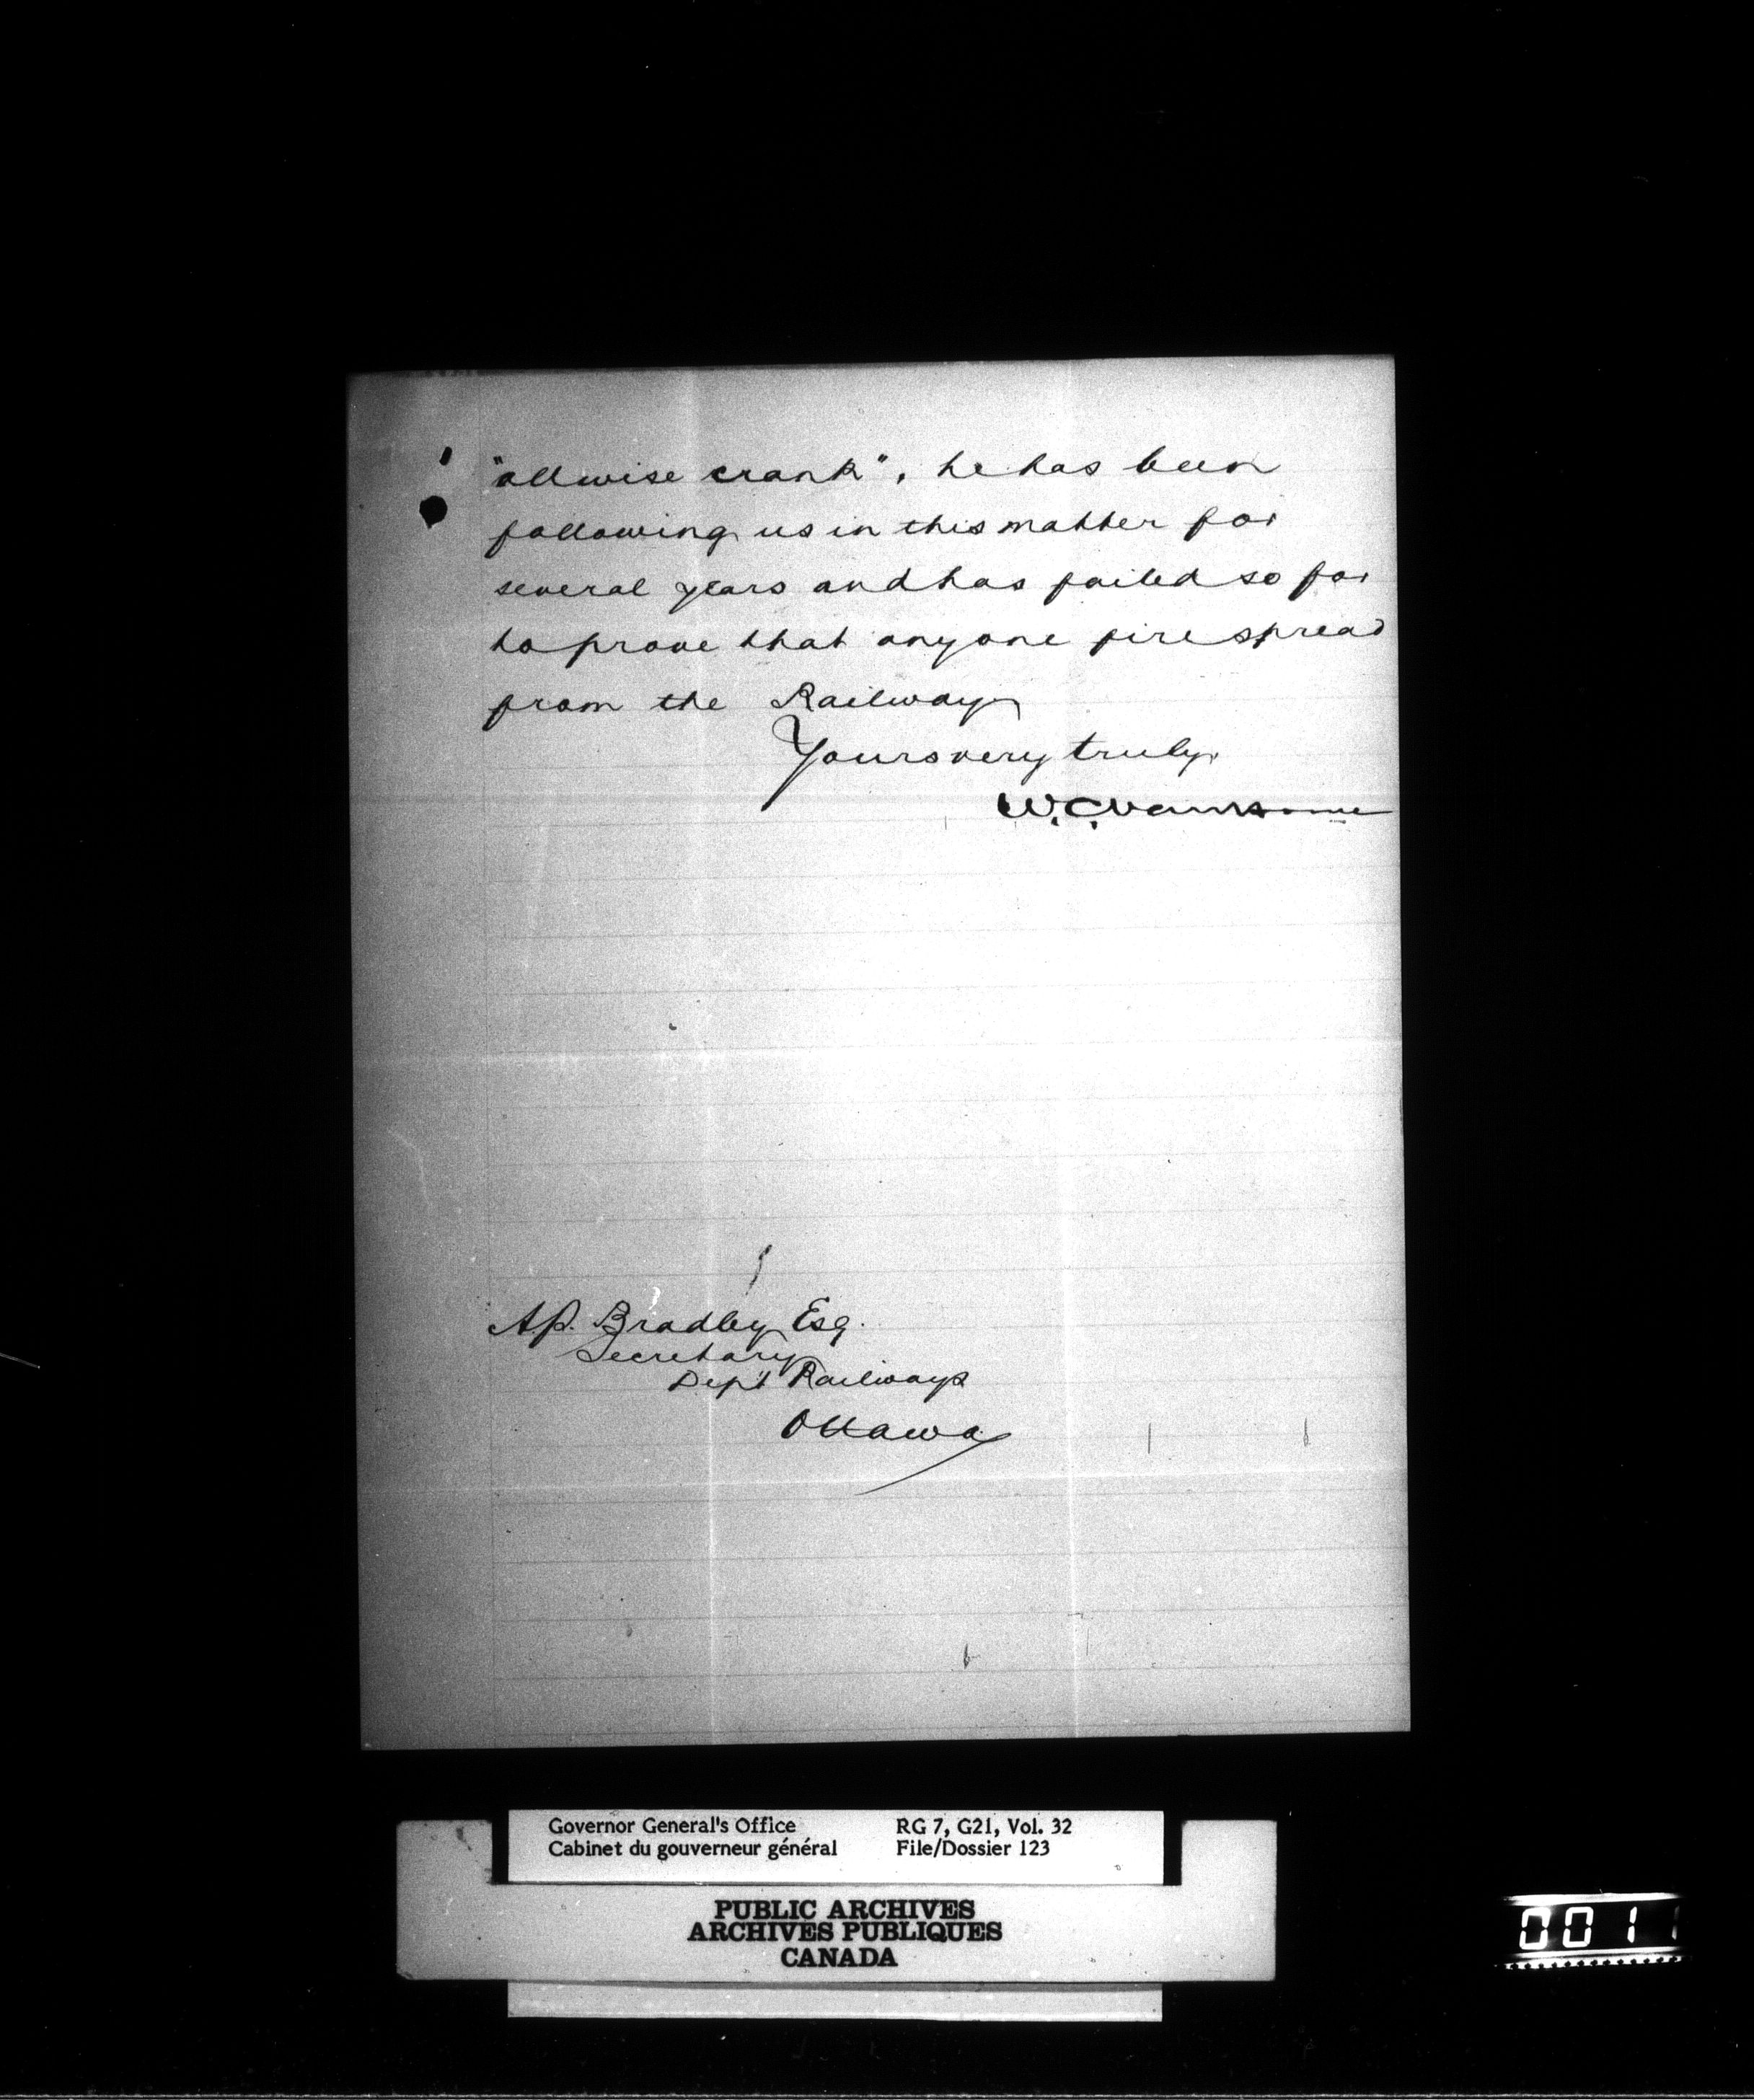 "allwise crank", he has been
following us in this matter for
several years and has failed so far
to prove that any one fire spread
from the Railway
Yours very truly,
W.C. Van Horne
A.P. Bradley Esq.
Secretary
Dept Railways
Ottawa
Governor General's Office RG 7, G21, Vol. 32
Cabinet du gouverneur général File/Dossier 123
PUBLIC ARCHIVES
ARCHIVES PUBLIQUES
CANADA
0011